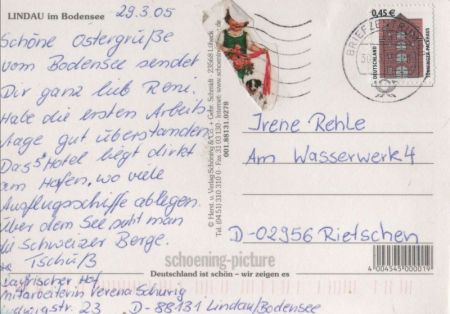 LINDAU im Bodensee
29.3.05
Schöne Ostergrüße
vom Bodensee sendet
Dir ganz lieb Reni.
Habe die ersten Arbeits
tage gut überstanden.
Das 5*Hotel liegt direkt
am Hafen, wo viele
Ausflugsschiffe ablegen.
Über dem See sieht man
die Schweizer Berge.
Tschüß
Bayrischer Hof
Mitarbeiterin Verena Schurig
Ludwigstr. 23 D-88131 Lindau/Bodensee
© Herst. u. Verlag Schöning & Co. + Gebr. Schmidt · 23568 Lübeck
Tel. (04 51) 310 310 0
001.88131.0278
BRIEFZENTRUM
0,45 €
DEUTSCHLAND
Irene Rehle
Am Wasserwerk 4
D-02956 Rietschen
schoening-picture
Deutschland ist schön – wir zeigen es
4 004545 000019